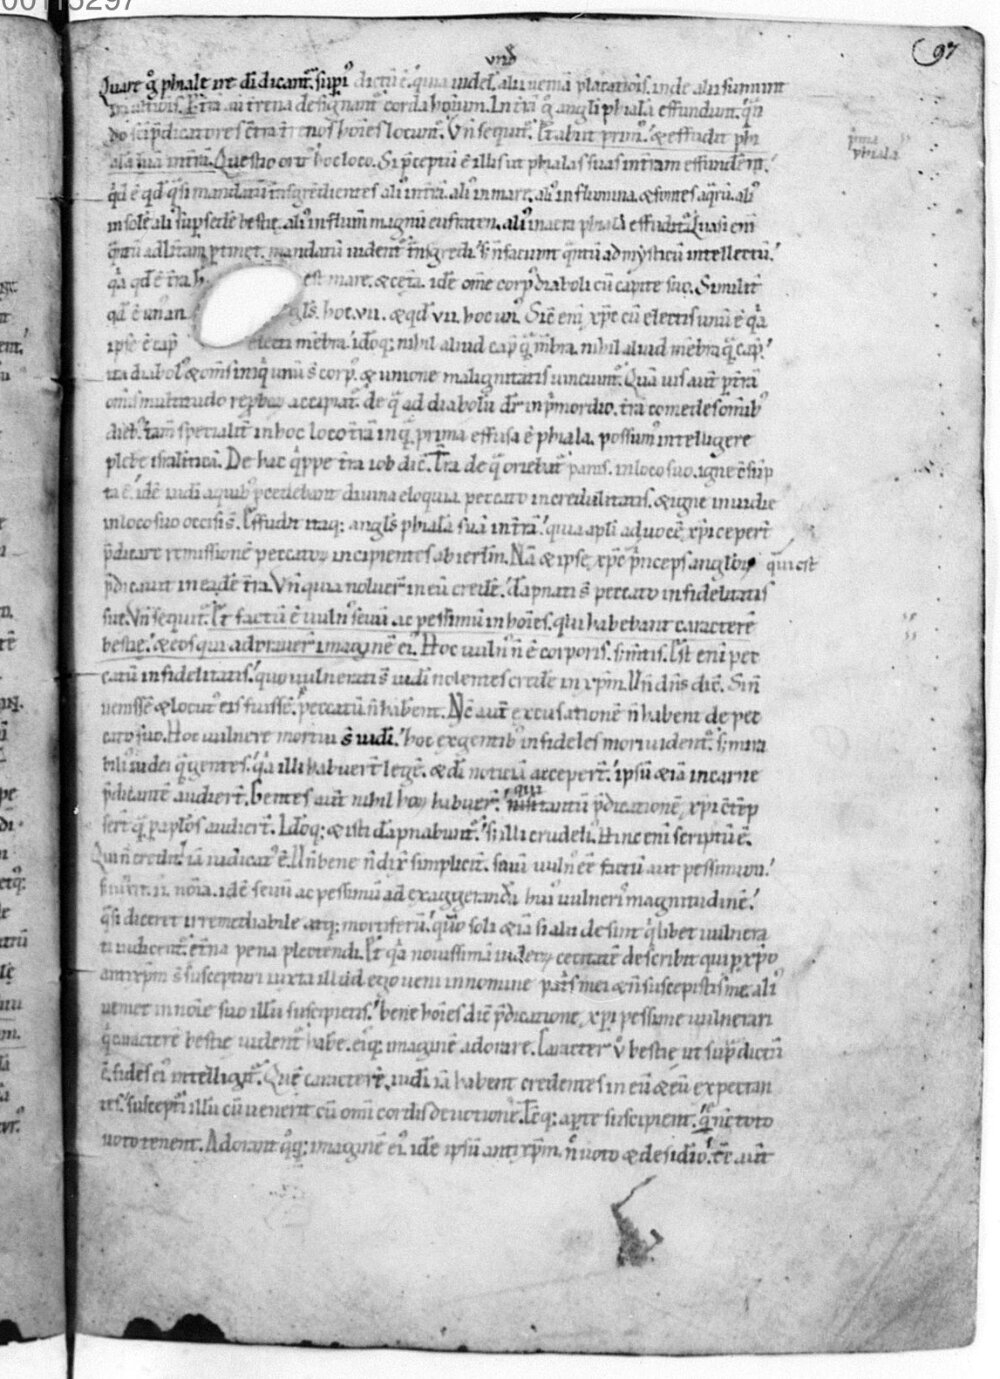 00115297
97
vnđ
Quare g̃ phiale ire dī dicant᷑. sup̃i᷒ dictū ē. quia indeł. alii uenia placatiōis. inde alii sumunt
Terra aut̃ terrena designant corda hōium. In t̃rā g̃ angli phialā effundunt. q̃n
do sc̄i p̃dicatores c̄tra t̃renos hōies locunt᷑. Vn̄ sequit᷑. Et abiit prim᷒. & effudit phi
alā suā in t̃rā. Questio orit᷑ hoc loco. Si p̃ceptū ē illis ut phialas suas in t̃ram effunderēt.
p̃ma
phiala
qd̃ ē qd̃ q̃si mandatū t̃nsgredientes ali᷒ in t̃rā. ali᷒ in mare. ali᷒ in flumina & fontes aq̃rū. ali᷒
in solē ali᷒ sup sedē bestię. ali᷒ in flum̄ magnū eufraten. ali᷒ in aera phialā effudit. Quasi eni
q̃ntū ad litt̃am ptinet. mandatū uident᷑ t̃nsgredi. s; n̄ faciunt q̃ntū ad mysticū intellectū.
q̃a qd̃ ē t̃ra h
est mare. & cet̃a. idē om̄e corp᷒ diaboli cū capite suo. Similit᷑
qd̃ ē un᷒ an
gls̄. hoc .vii. & qd̃ .vii. hoc un᷒. Sic̄ eni xp̄c cū electis unū ē q̃a
ipse ē cap᷒
electi mēbra. idoq; nihil aliud cap᷒ q̃ mēbra. nihil aliud mēbra q̃ cap᷒.
ita diabol᷒ & om̄s iniq̃ unū s̄ corp᷒. & unione malignitatis uinciunt᷑. Quā uis aut̃ p t̃rā
om̄is multitudo reproboꝝ accipiat᷑. de q̃ ad diabolū dr̄ in p̃mordio. t̃rā comedes om̄ib᷒
dieb᷒. tam̄ specialit᷑ in hoc loco t̃rā in q̃ prima effusa ē phiala. possum᷒ intelligere
plebē isr̃aliticā. De hac q̃ppe t̃ra iob dic̄. T̃ra de q̃ oriebat᷑ panis. in loco suo. igne c̄sūp
ta ē. idē iudi a quib᷒ pcedebant diuina eloquia. peccato incredulitatis. & igne inuidie
in loco suo occisi s̄. Effudit itaq; angls̄ phialā suā in t̃rā. quia apli ad uocē xp̄i cepert̃
p̃dicare remissionē peccatoꝝ incipientes ab ierłm. Nā & ipse xp̄c p̃nceps angloꝝ qui est
p̃dicauit in eadē t̃ra. Vn̄ quia noluer̃ in eū credē. dāpnati s̄ peccato infidelitatis
sue. Vn̄ sequit᷑. Et factū ē uuln᷒ seuū ac pessimū in hōies. qui habebant caracterē
bestię. & eos qui adorauer̃ imaginē ei᷒. Hoc uuln᷒ n̄ ē corporis. s; m̄tis. Est eni pec
catū infidelitatis. quo uulnerati s̄ iudi nolentes credē in xp̄m. Un̄ dn̄s dic̄. Si n̄
uenissē & locut᷒ eis fuissē. peccatū n̄ habent. Nc̄ aut̃ excusationē n̄ habent de pec
cato suo. Hoc uulnere mortui s̄ iudi. hoc ex gentib᷒ infideles mori uident᷑. s; mira
bili᷒ iudei q̃ gentes. q̃a illi habuert̃ legē. & dī noticiā accepert̃. ipsū & iā in carne
p̃dicantē audiert̃. Gentes aut̃ nihil hoꝝ habuer̃. nisi tantū p̃dicationē xp̄i
qui
sert̃ q̃ p aplos audiert̃. Idoq; & isti dāpnabunt᷑. s; illi crudeli᷒. Hinc eni scriptū ē.
Qui n̄ credit. iā iudicat᷒ ē. Un̄ bene n̄ dix̃ simplicit᷑. sauū uuln᷒ eē factū aut pessimum.
noīa. idē seuū ac pessimū ad exaggerandā hui᷒ uulneris magnitudinē.
q̃si diceret irremediabile atq; mortiferū. quo soli & iā si alii desint q̃libet uulnera
ti iudicent᷑. et̃na pena plectendi. Et q̃a nouissimā iudeoꝝ cecitatē describit qui p xp̄o
antixp̄m s̄ suscepturi iuxta illud. ego ueni in nomine pat̃s mei & n̄ suscepistis me. ali᷒
ueniet in noīe suo illū suscipietis. bene hōies dic̄ p̃dicatione xp̄i pessime uulnerari
q̃ caracterē bestie uident᷑ habe. ei᷒q; imaginē adorare. Caracter u᷒ bestie ut sup̃ dictū
ē. fides ei᷒ intelligit᷑. Quē caracterē. iudi iā habent credentes in eū & eū expectan
tes. suscepti illū cū uenerit cū om̄i cordis deuotione. Eēq; apte suscipient. q̃ nc̄ toto
uoto tenent. Adorant q̃q; imaginē ei᷒. idē ipsū antixp̄m. n̄ uoto & desidio. c̄t̃ aut̃